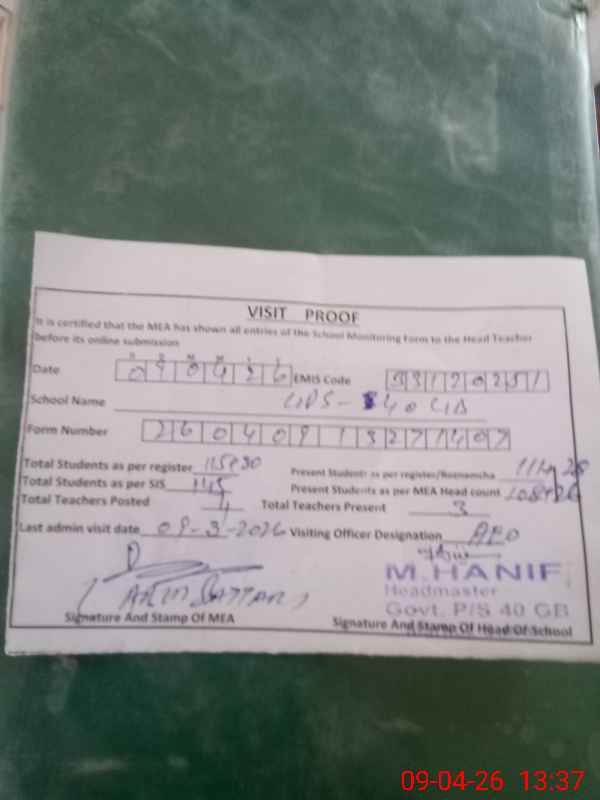 VISIT PROOF
It is certified that the MEA has shown all entries of the School Monitoring Form to the Head Teacher
before its online submission
D D M M Y Y
Date 090426 EMIS Code 33120251
School Name GPS- 40 GB
Form Number
Total Students as per register Present Students as per register/Roznamcha
Total Students as per SIS 145 Present Students as per MEA Head count
Total Teachers Posted 4 Total Teachers Present 3
Last admin visit date 09-3-2026 Visiting Officer Designation AEO
M.HANIF
Headmaster
Govt. P/S 40 GB
Signature And Stamp Of MEA Signature And Stamp Of Head Of School
09-04-26 13:37